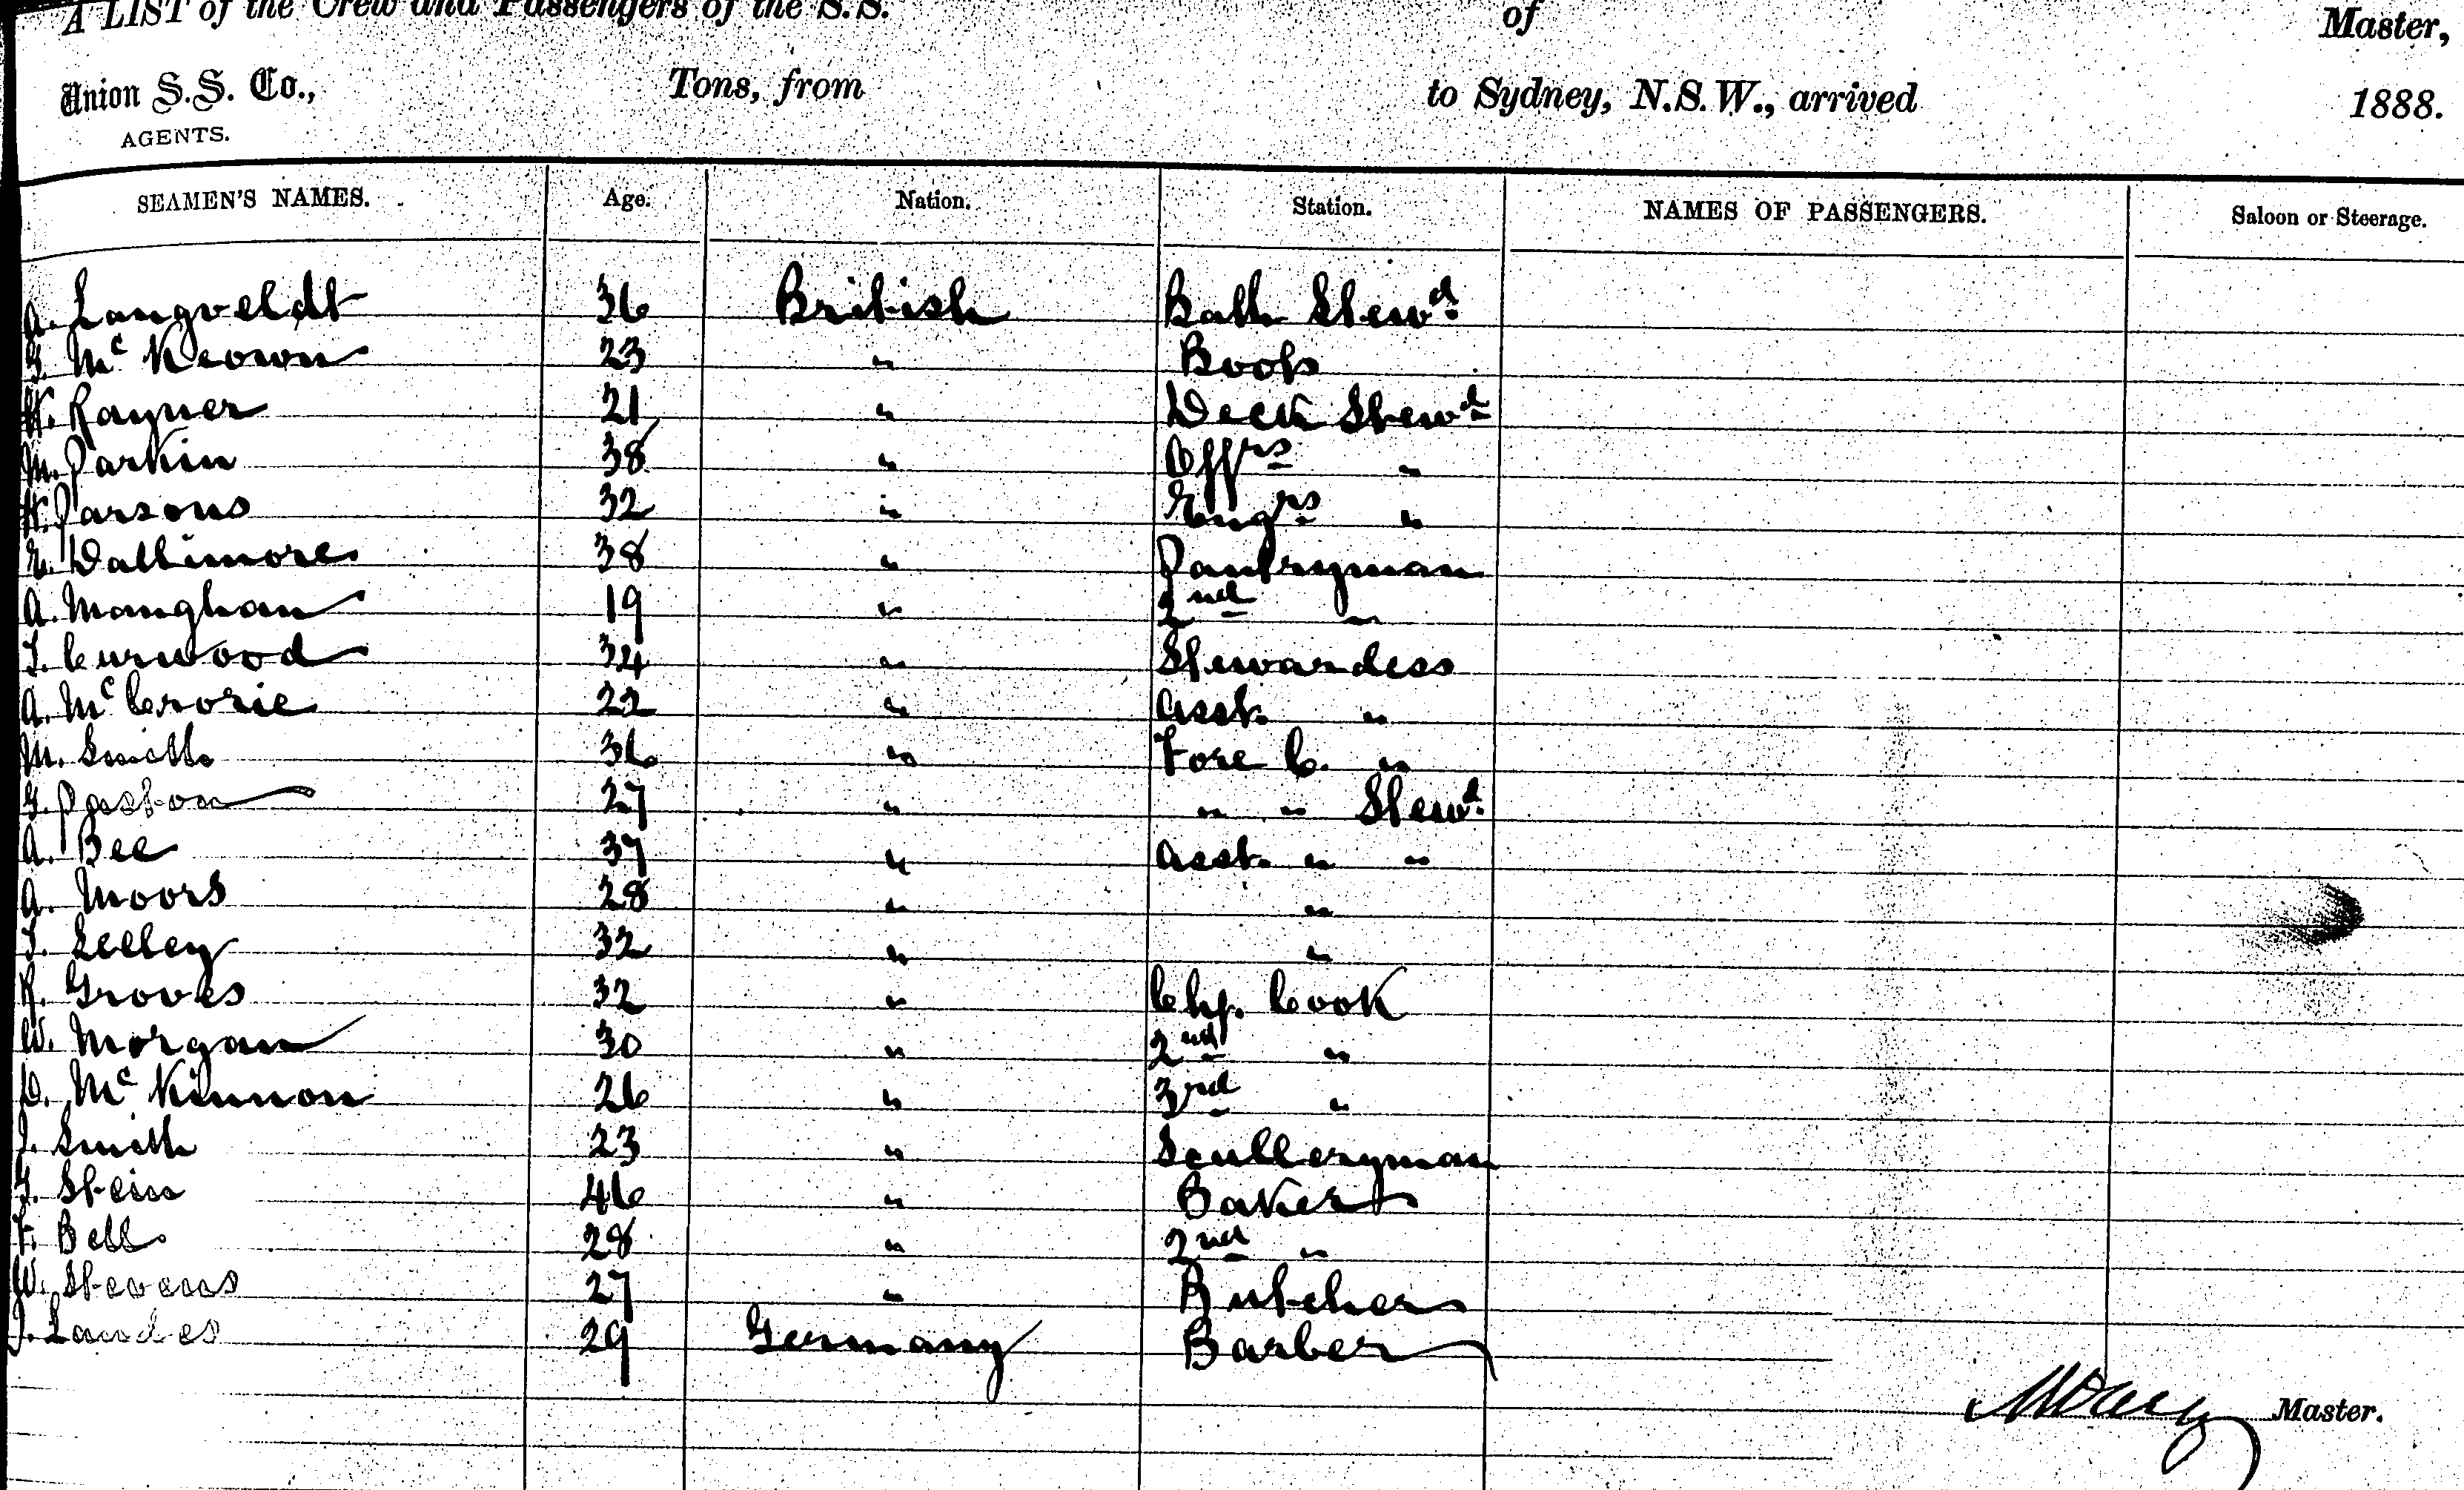 A LIST of the Crew and Passengers of the S.S. of Master,
Union S.S. Co., Tons, from to Sydney, N.S.W., arrived 1888.
AGENTS.
SEAMEN'S NAMES. Age. Nation. Station. NAMES OF PASSENGERS. Saloon or Steerage.
A. Langveldt 36 British Bath Stewd.
G. McKeown 23 " Boots
H. Rayner 21 " Deck Stewd
M. Parkin 38 " Offrs "
H. Parsons 32 " Engrs "
E. Dallimore 38 " Pantryman
A. Manghan 19 " 2nd "
T. Curwood 34 " Stewardess
A. McCrorie 22 " Asst. "
M. Smith 36 " Fore C. "
G. Paston 27 " " " Stewd.
A. Bee 37 " Asst. " "
A. Moors 28 " "
T. Lelley 32 " "
R. Groves 32 " Chf. Cook
W. Morgan 30 " 2nd "
D. McKinnon 26 " 3rd "
J. Smith 23 " Sculleryman
G. Stein 46 " Baker
F. Bell 28 " 2nd "
W. Stevens 27 " Butcher
J. Landes 29 Germany Barber
Master.